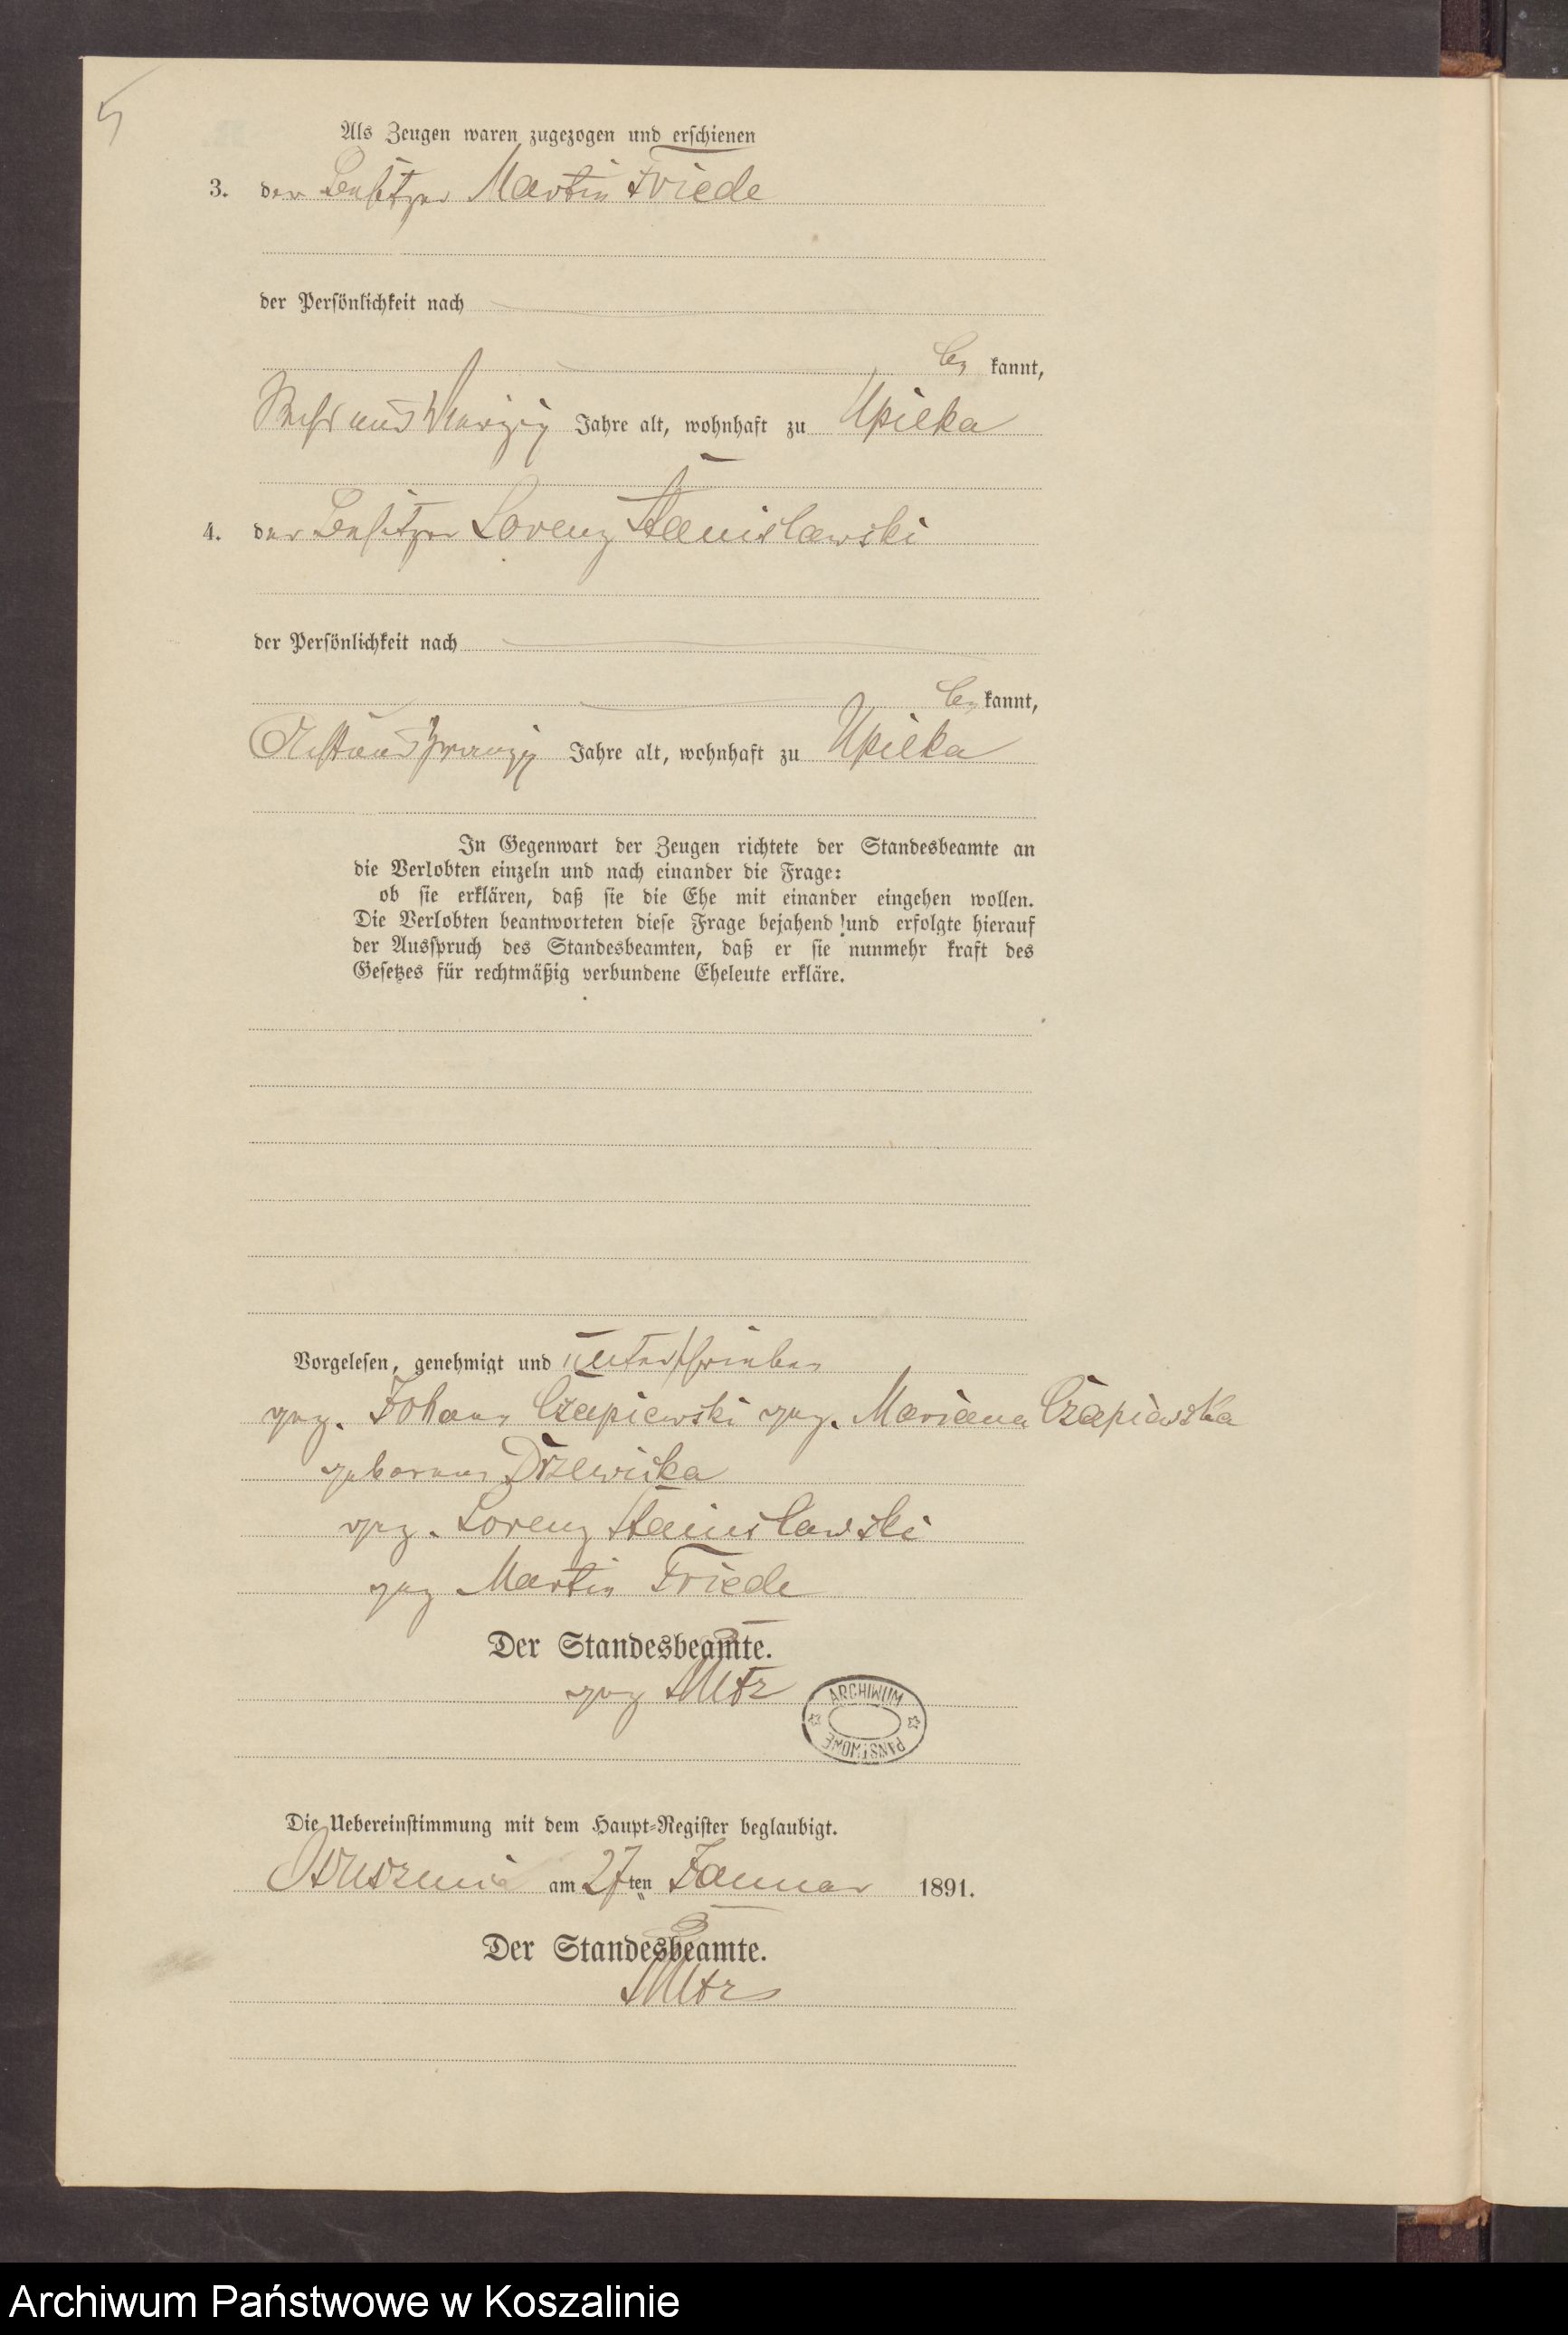 Als Zeugen waren zugezogen und erschienen
3. der Besitzer Martin Friede
der Persönlichkeit nach
be kannt,
und vierzig Jahre alt, wohnhaft zu Upilka
4. der Besitzer Lorenz Stanislawski
der Persönlichkeit nach
be kannt,
Acht und zwanzig Jahre alt, wohnhaft zu Upilka
In Gegenwart der Zeugen richtete der Standesbeamte an
die Verlobten einzeln und nach einander die Frage:
ob sie erklären, daß sie die Ehe mit einander eingehen wollen.
Die Verlobten beantworteten diese Frage bejahend und erfolgte hierauf
der Ausspruch des Standesbeamten, daß er sie nunmehr kraft des
Gesetzes für rechtmäßig verbundene Eheleute erkläre.
Vorgelesen, genehmigt und unterschrieben
gez. Johann Czapiewski gez. Mariana Czapiewska
geborene Drzewicka
gez. Lorenz Stanislawski
gez Martin Friede
Der Standesbeamte.
gez
ARCHIWUM PAŃSTWOWE
Die Uebereinstimmung mit dem Haupt-Register beglaubigt.
am 27ten Januar 1891.
Der Standesbeamte.
Archiwum Państwowe w Koszalinie